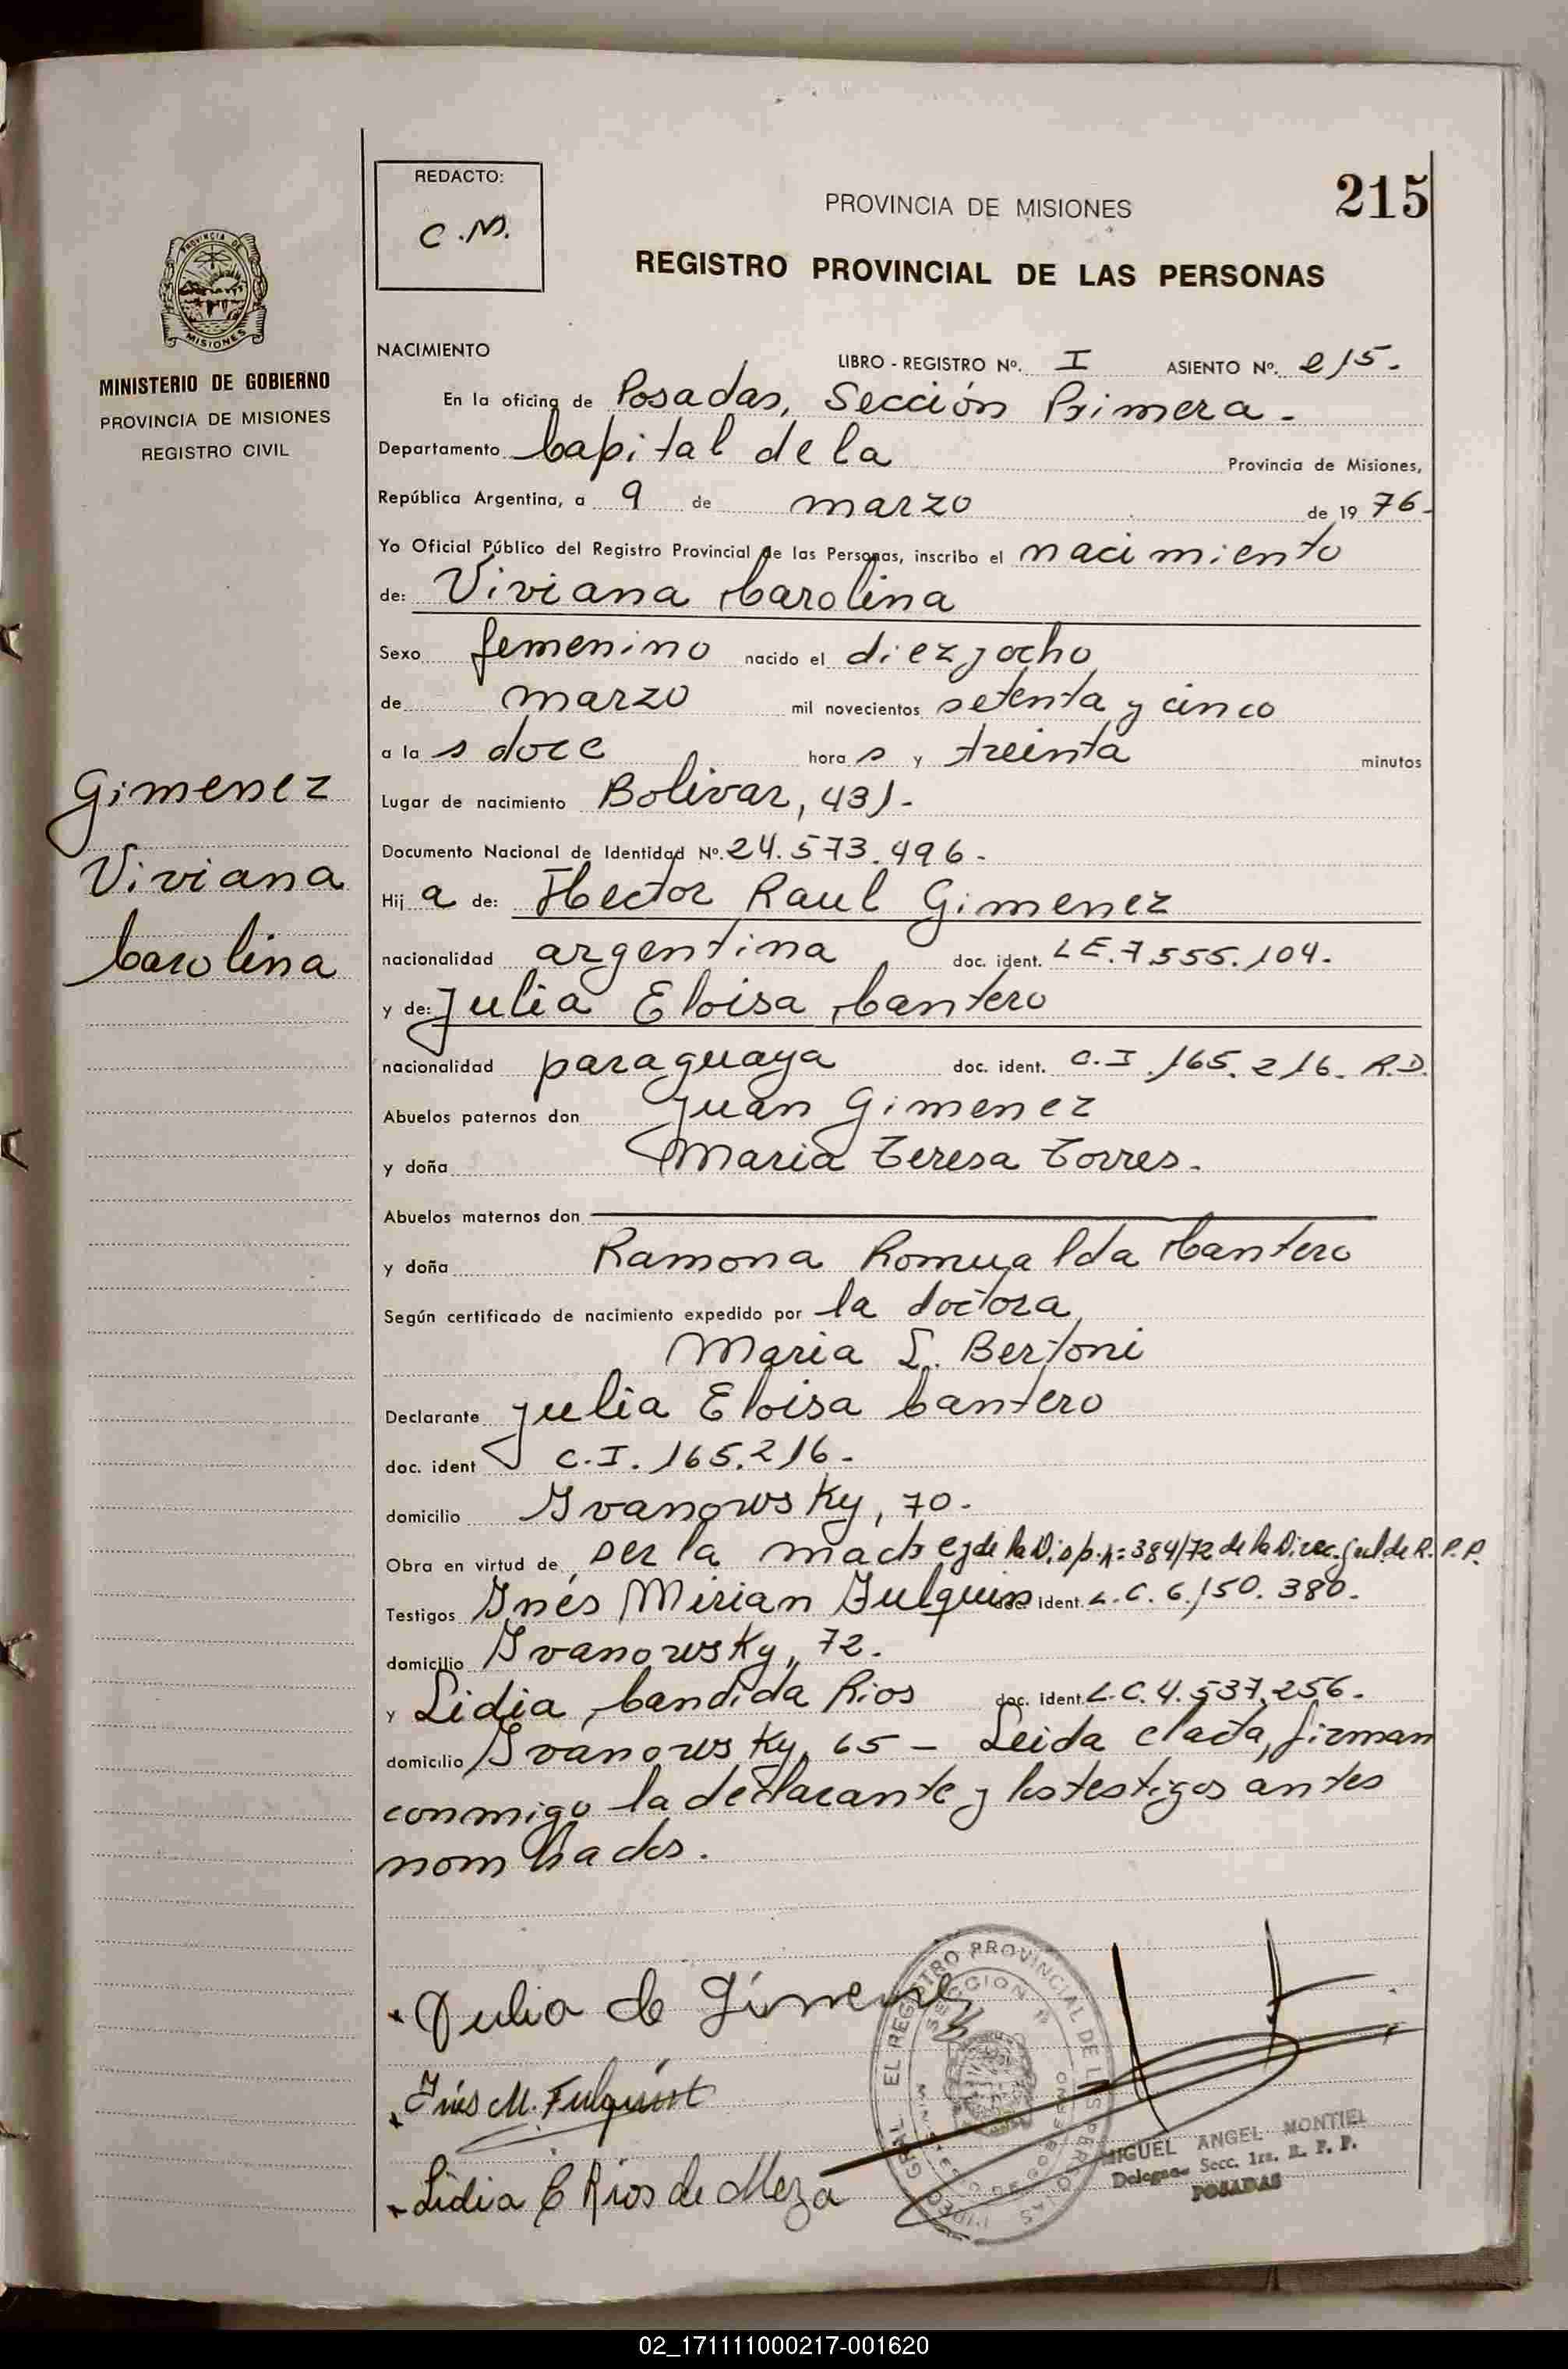 215
REDACTO:
C.M.
PROVINCIA DE MISIONES
REGISTRO PROVINCIAL DE LAS PERSONAS
PROVINCIA DE
MISIONES
MINISTERIO DE GOBIERNO
PROVINCIA DE MISIONES
REGISTRO CIVIL
Gimenez
Viviana
Carolina
NACIMIENTO LIBRO - REGISTRO Nº. I ASIENTO Nº. 215.
En la oficina de Posadas, Sección Primera.
Departamento Capital de la Provincia de Misiones,
República Argentina, a 9 de marzo de 19 76.
Yo Oficial Público del Registro Provincial de las Personas, inscribo el nacimiento
de: Viviana Carolina
Sexo femenino nacido el diez y ocho
de marzo mil novecientos setenta y cinco
a la s doce hora s y treinta minutos
Lugar de nacimiento Bolivar, 431.
Documento Nacional de Identidad Nº. 24.573.496.
Hij a de: Hector Raul Gimenez
nacionalidad argentina doc. ident. L.E. 7.555.104.
y de: Julia Eloisa Cantero
nacionalidad paraguaya doc. ident. C.I. 165.216. R.D.
Abuelos paternos don Juan Gimenez
y doña Maria Teresa Torres.
Abuelos maternos don
y doña Ramona Romualda Cantero
Según certificado de nacimiento expedido por la doctora
Maria L. Bertoni
Declarante Julia Eloisa Cantero
doc. ident C.I. 165.216.
domicilio Ivanowsky, 70.
Obra en virtud de ser la madre y de la Disp. nº 384/72 de la Direc. Gral. de R.P.P.
Testigos Inés Mirian Fulquin doc. ident. L.C. 6.150.380.
domicilio Ivanowsky, 72.
y Lidia Candida Rios doc. ident. L.C. 4.537.256.
domicilio Ivanowsky, 65 - Leida el acta, firman
conmigo la declarante y los testigos antes
nombrados.
Julia de Gimenez
Inés M. Fulquin
Lidia C Rios de Meza
EL REGISTRO PROVINCIAL DE LAS PERSONAS
SECCION 1ª
MIGUEL ANGEL MONTIEL
Delegado Secc. 1ra. R. P. P.
POSADAS
02_171111000217-001620